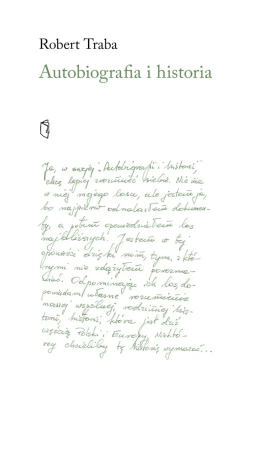 Robert Traba
Autobiografia i historia
Ja, w mojej „Autobiografii i historii”
chcę lepiej zrozumieć siebie. Nie ma
w niej mojego losu, ale jestem ja,
bo najpierw odnalazłem dokumen-
ty, a potem opowiedziałem los
najbliższych. Jestem w tej
opowieści dzięki nim, tym, z któ-
rymi nie zdążyłem porozma-
wiać. Odpominając ich los, do-
powiadam własne rozumienie
naszej wspólnej, rodzinnej his-
torii, historii, która jest dziś
częścią Polski i Europy. Niektó-
rzy chcieliby tę historię wymazać...